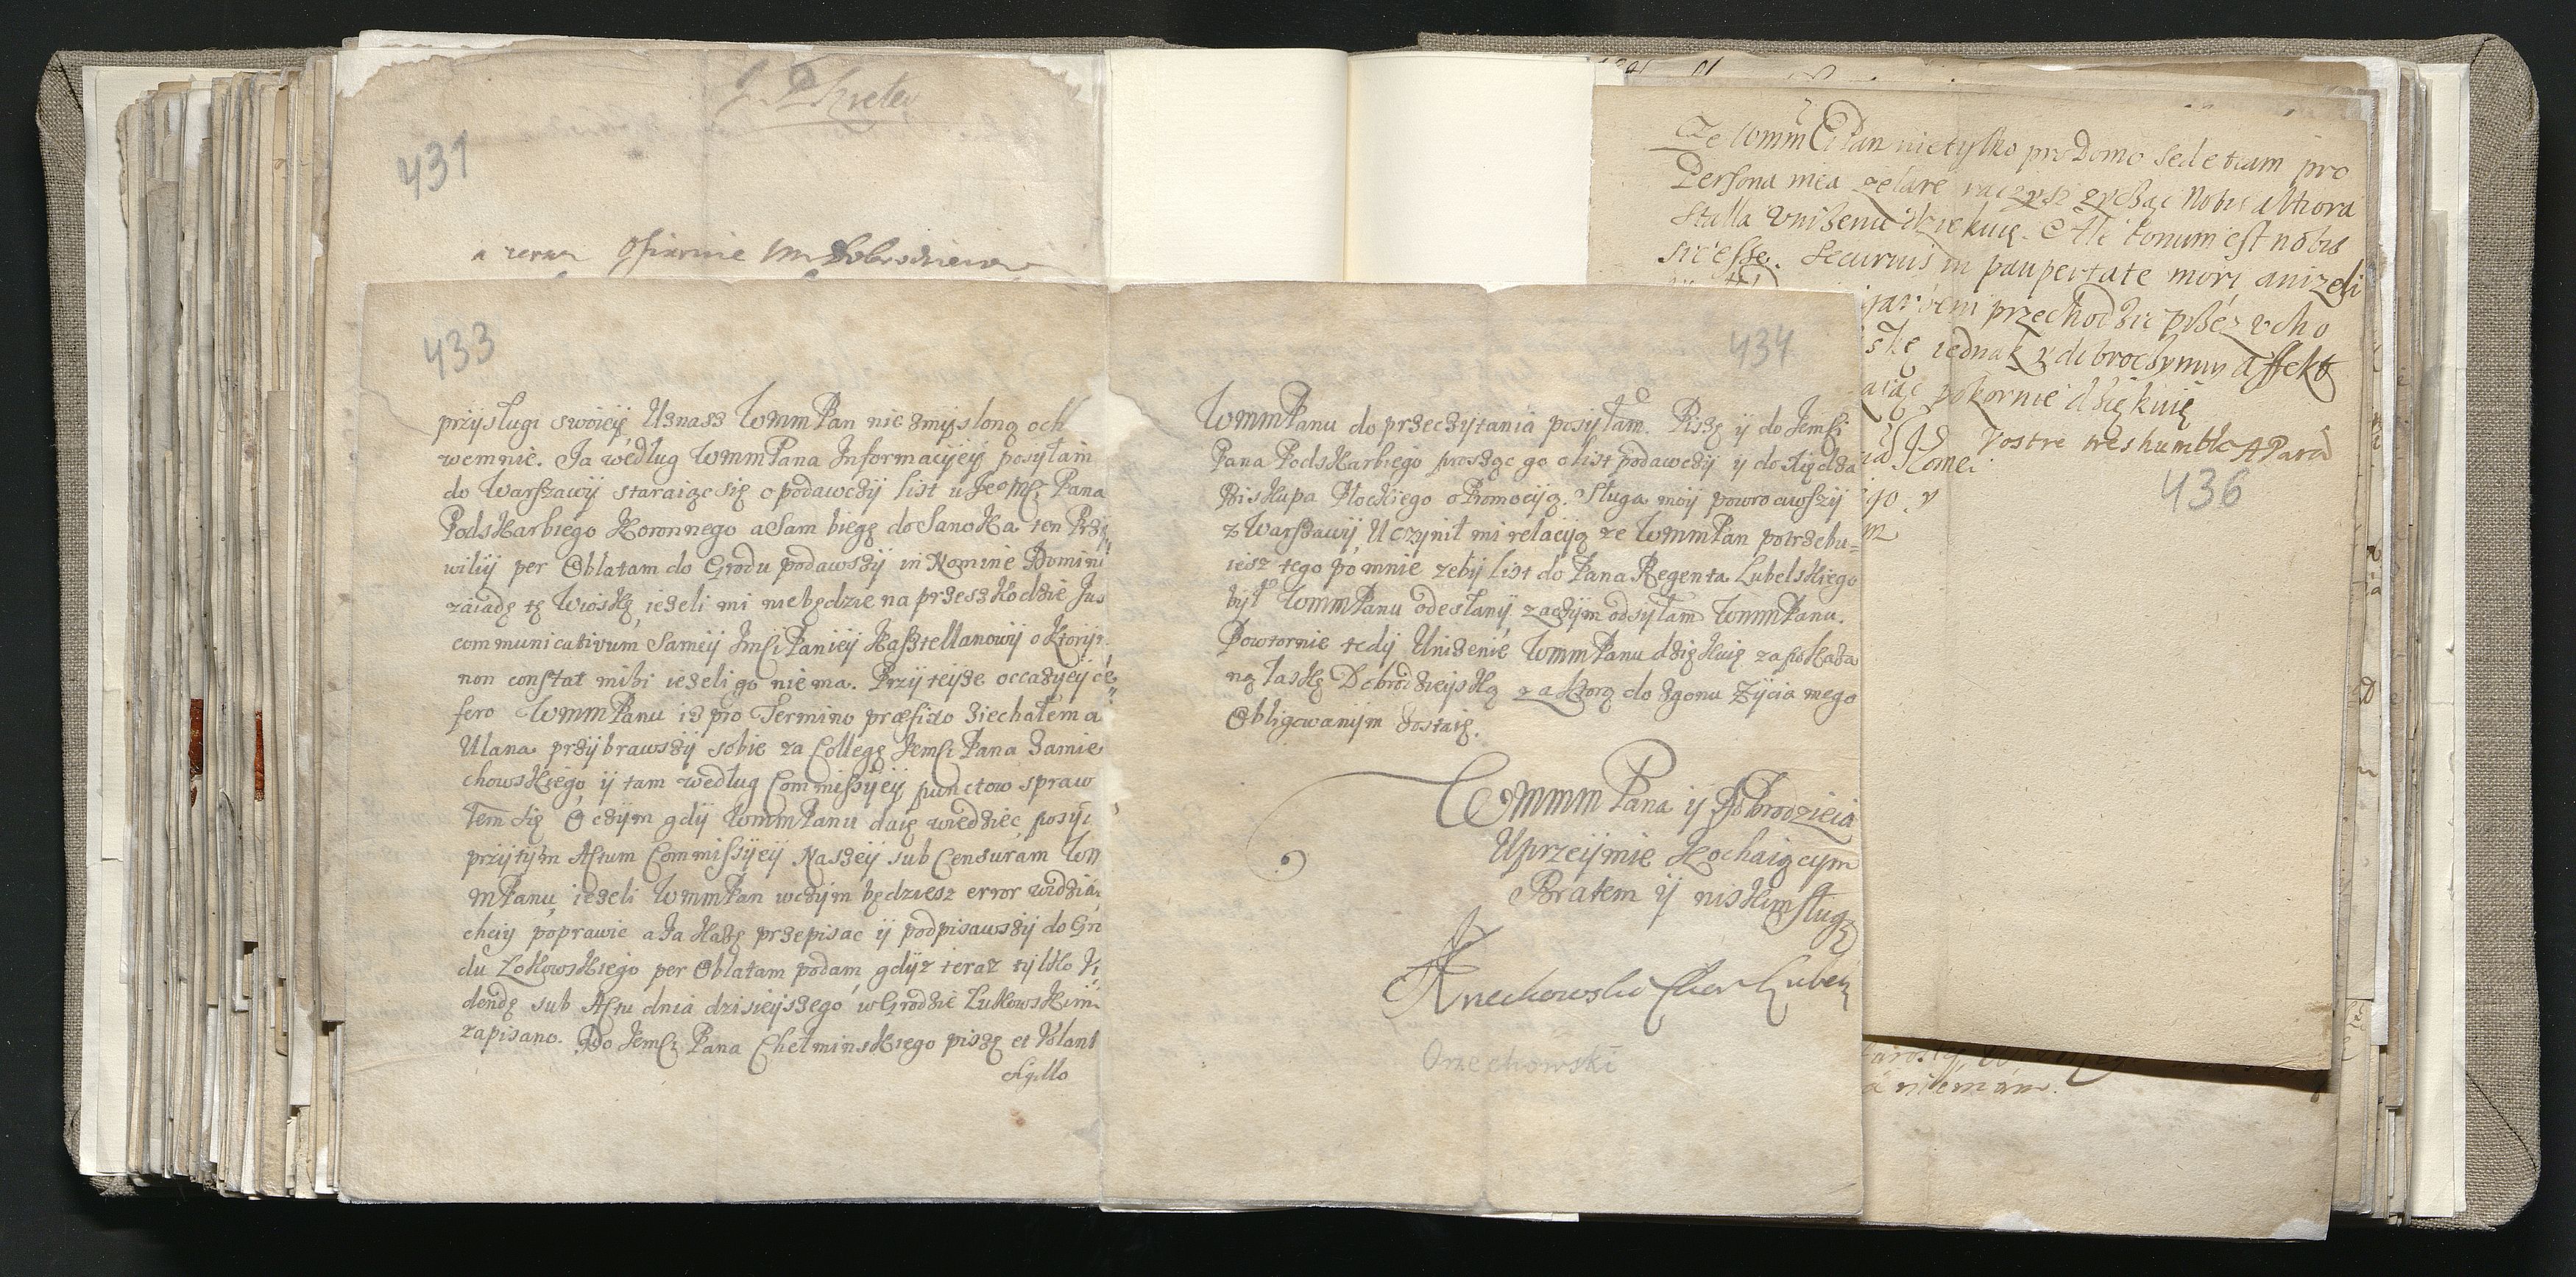 431
a teraz Ofiarnie Dobrodzieiow
433
przysługi swoieij Uznasz WMMPan niezmysloną och
wemnie. Ja według WMMPana Informacyieij posyłam
do Warszawij staraiąc się o podawczij list u Jeomści Pana
Podskarbiego Koronnego a Sam biegę do Sanoka ten Przij
wilij per Oblatam do Grodu podawszij in Nomine Domini
zaiadę tę Wioskę iezeli mi niebędzie na przeszkodzie Jus
communicativum Sameij Jmści Panieij Kasztellanowij o ktorij
non constat mihi iezeli go niema. Przij teijze occazijeij
fero WMMPanu iz pro Termino præfixo ziechałem a
Ulana przijbrawszij sobie za Collegę Jemści Pana Zamie
chowskiego ij tam według Commissijeij punctow spraw
łem się O czijm gdij WMMPanu daię wiedziec, posyi
przijtijm Actum Commissijeij Naszeij sub Censuram WM
MPanu, iezeli WMMPan wczijm będziesz error widzia
chciij poprawic a Ja Każę przepisac ij podpisawszij do Gr
du Łokowskiego per Oblatam podam, gdijz teraz tylko Vi
dendę sub Actu dnia dzisieijszego w Grodzie Lukowskim
zapisano. Do Jemści Pana Chełminskiego piszę et Volant
Sigillo
434
WMMPanu do przeczytania posyłam. Piszę ij do Jemści
Pana Podskarbiego prosząc go o list podawczij ij do Xiędza
Biskupa Płockiego o Promociją. Sługa moij powrociwszij
z Warszawij Uczynił mi relaciją ze WMMPan potrzebu=
iesz tego po mnie zebij list do Pana Regenta Lubelskiego
był WMMPanu odesłanij, zaczijm odsyłam WMMPanu.
Powtornie tedij Unizenie WMMPanu dziękuię za pokaza
ną łaskę Dobrodzieijską za ktorą do zgonu Zijcia mego
Obligowanijm zostaię.
WMMMPana ij Dobrodzieia
Uprzeijmie Kochaiącym
Bratem ij niskim sługą
Orzechowski
Ze WMM Pan nietylko pro Domo sed etiam pro
Persona mea zelare raczysz zycząc Nobis altiora
stalla Vnizenie dziekuię. Ale bonum est nobis
sic esse. Securius in paupertate mori anizeli
przechodzić przez vcho
iednak z dobroczynny affekt
pokornie dziękuię
Vostre tres humble
436